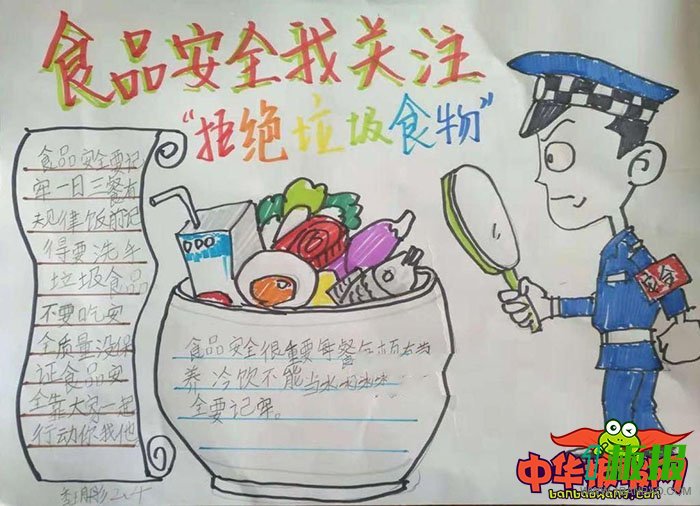 食品安全我关注
“拒绝垃圾食物”
食品安全要记
牢一日三餐有
规律饭前记
得要洗手
垃圾食品
不要吃安
全质量没保
证食品安
全靠大家一起
行动你我他
食品安全很重要每餐
养冷饮不能当水
全要记牢。
安全
中华
报报网
banbaowang.com